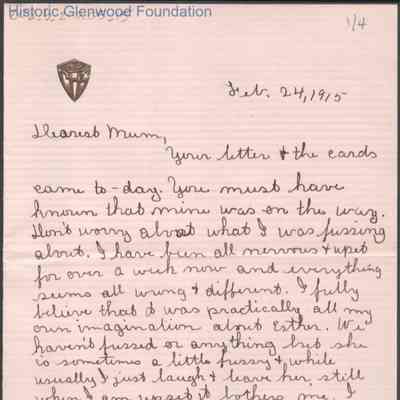 Historic Glenwood Foundation
1/4
Feb. 24, 1915
Dearest Mum,
Your letter & the cards
came to-day. You must have
known that mine was on the way.
Don't worry about what I was fussing
about. I have been all nervous & upset
for over a week now and everything
seems all wrong & different. I fully
believe that it was practically all my
own imagination about Esther. We
haven't fussed or anything but she
is sometimes a little fussy &, while
usually I just laugh & leave her, still
when I am upset it bothers me. I